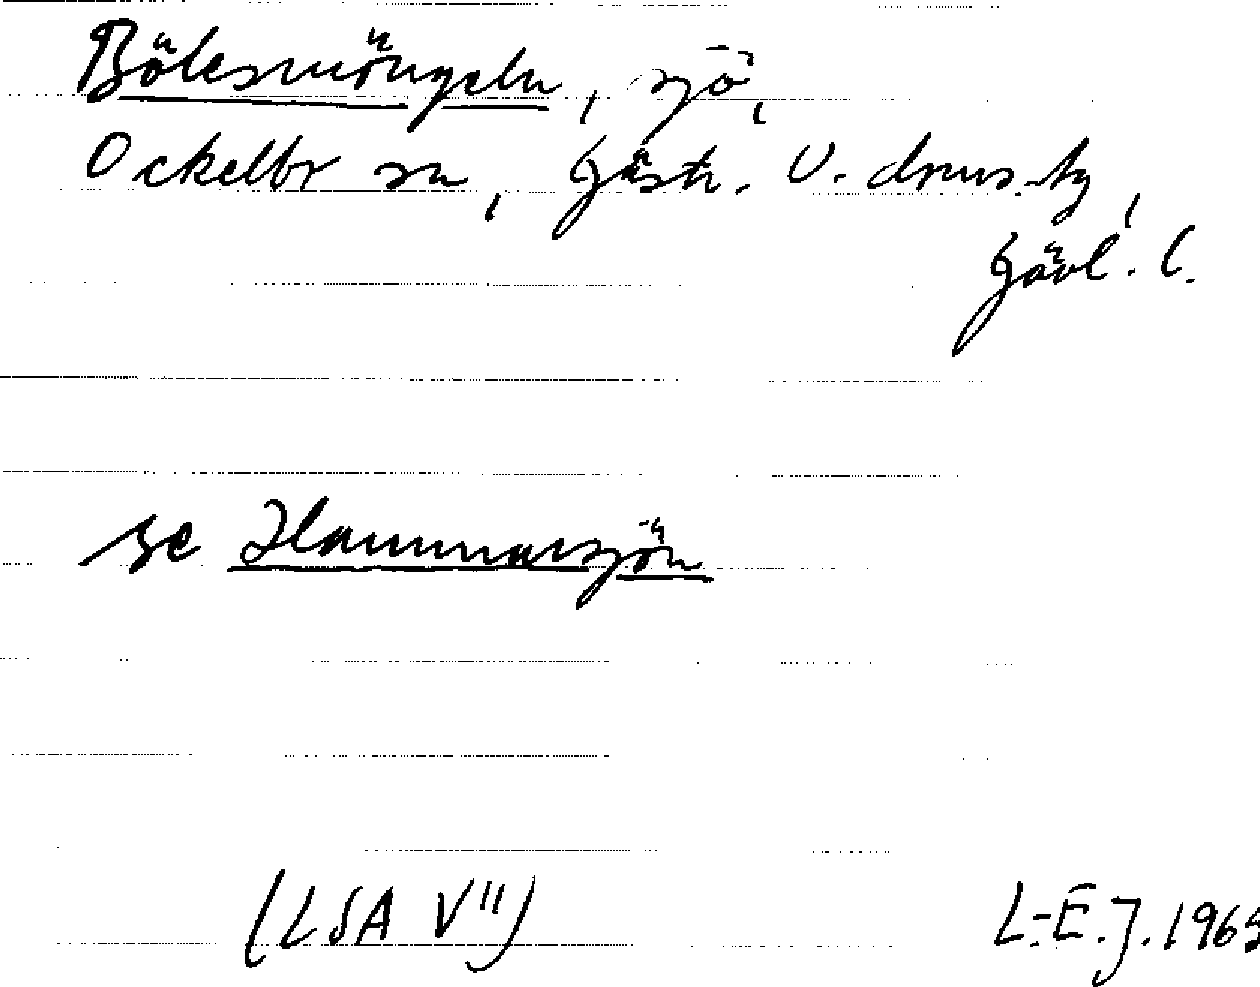 Bölesmöngeln, sjö,
Ockelbo sn, Gästr. V. doms.-tg,
Gävl. l.
se Hammarsjön
(LSA V")
L-E.J. 1965